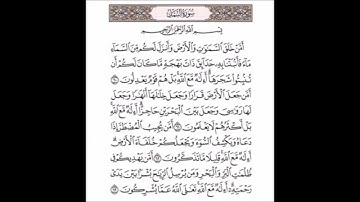 سُورَةُ النَّمْلِ
بِسْمِ اللَّهِ الرَّحْمَٰنِ الرَّحِيمِ
أَمَّنْ خَلَقَ السَّمَٰوَٰتِ وَالْأَرْضَ وَأَنزَلَ لَكُم مِّنَ السَّمَآءِ
مَآءً فَأَنۢبَتْنَا بِهِۦ حَدَآئِقَ ذَاتَ بَهْجَةٍ مَّا كَانَ لَكُمْ أَن
تُنۢبِتُوا۟ شَجَرَهَآ أَءِلَٰهٌ مَّعَ اللَّهِ بَلْ هُمْ قَوْمٌ يَعْدِلُونَ ٦٠
أَمَّن جَعَلَ الْأَرْضَ قَرَارًا وَجَعَلَ خِلَٰلَهَآ أَنْهَٰرًا وَجَعَلَ
لَهَا رَوَٰسِىَ وَجَعَلَ بَيْنَ الْبَحْرَيْنِ حَاجِزًا أَءِلَٰهٌ مَّعَ اللَّهِ
بَلْ أَكْثَرُهُمْ لَا يَعْلَمُونَ ٦١ أَمَّن يُجِيبُ الْمُضْطَرَّ إِذَا
دَعَاهُ وَيَكْشِفُ السُّوٓءَ وَيَجْعَلُكُمْ خُلَفَآءَ الْأَرْضِ
أَءِلَٰهٌ مَّعَ اللَّهِ قَلِيلًا مَّا تَذَكَّرُونَ ٦٢ أَمَّن يَهْدِيكُمْ فِى
ظُلُمَٰتِ الْبَرِّ وَالْبَحْرِ وَمَن يُرْسِلُ الرِّيَٰحَ بُشْرًۢا بَيْنَ يَدَىْ
رَحْمَتِهِۦٓ أَءِلَٰهٌ مَّعَ اللَّهِ تَعَٰلَى اللَّهُ عَمَّا يُشْرِكُونَ ٦٣